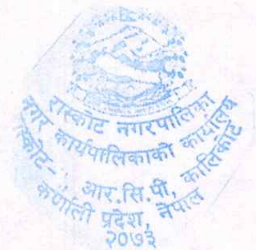 रास्कोट नगरपालिका
नगर कार्यपालिकाको कार्यालय
रास्कोट-
आर.सि.पी, कालिकोट
कर्णाली प्रदेश, नेपाल
२०७३